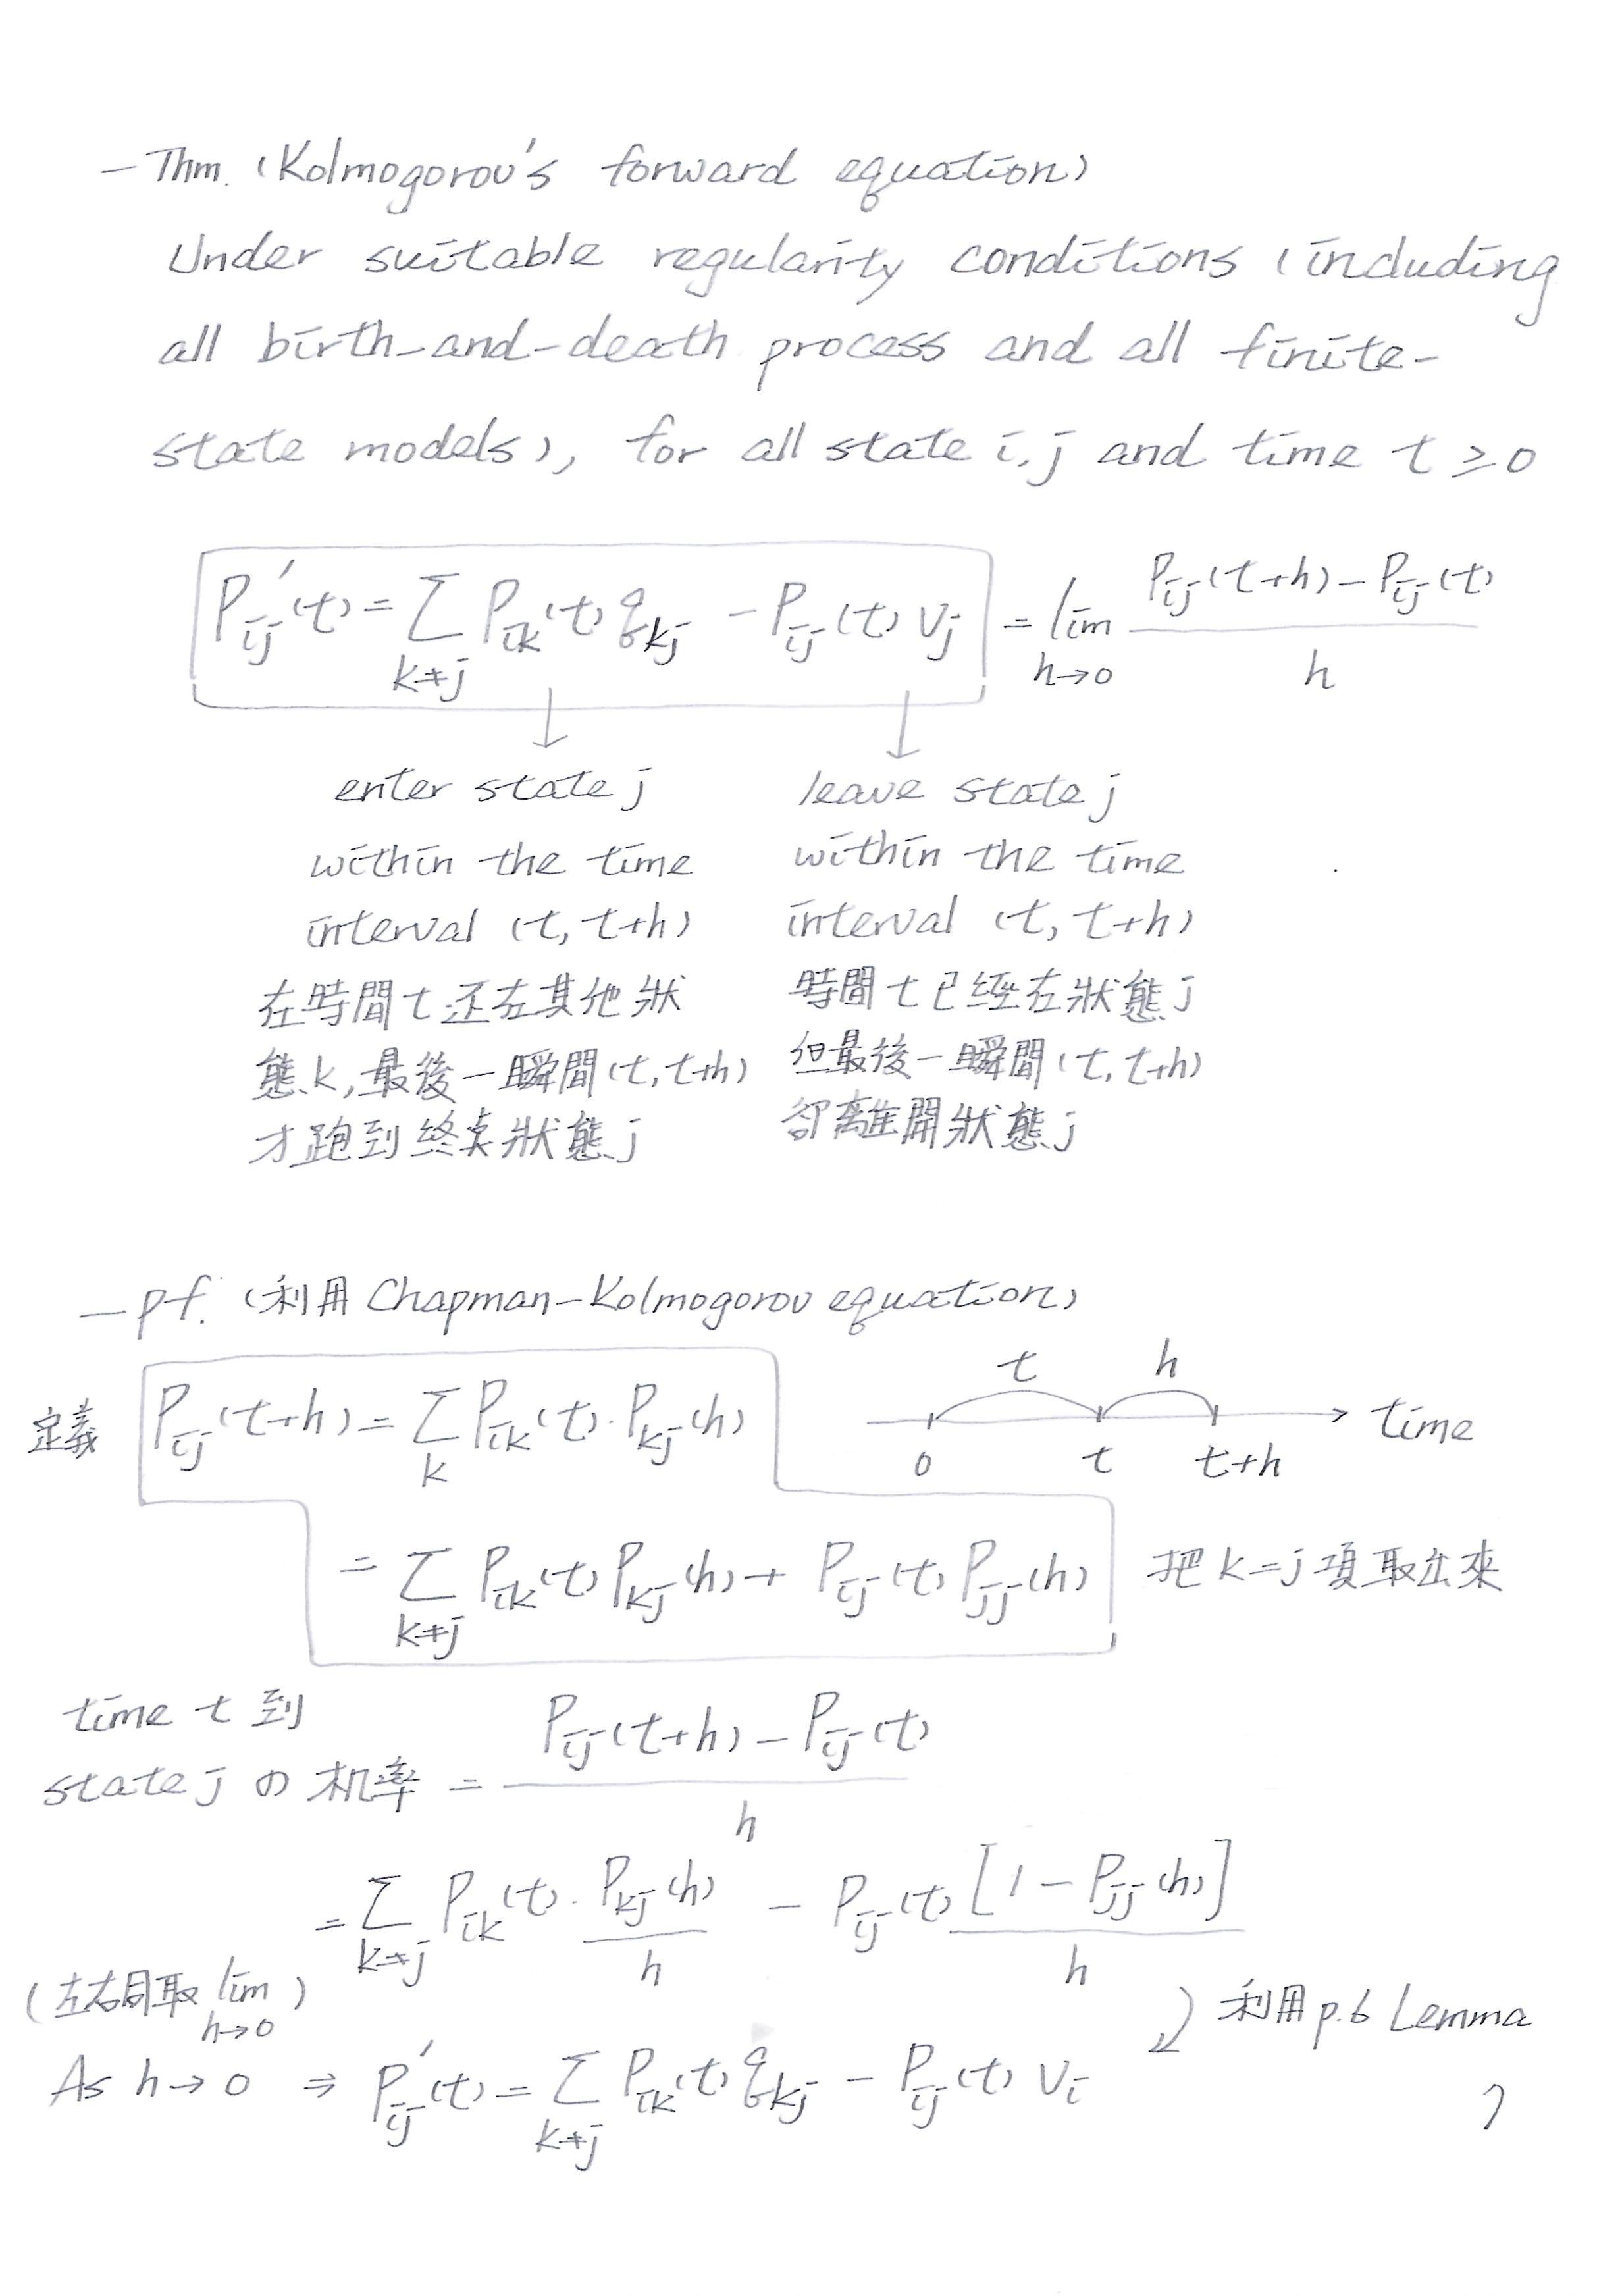 — Thm. (Kolmogorov's forward equation)
Under suitable regularity conditions (including
all birth-and-death process and all finite-
state models), for all state i, j and time t ≥ 0
P_ij'(t) = Σ_{k≠j} P_ik(t) q_kj − P_ij(t) v_j = lim_{h→0} (P_ij(t+h) − P_ij(t)) / h
enter state j
within the time
interval (t, t+h)
在時間 t 还在其他狀
態 k, 最後一瞬間 (t, t+h)
才跑到終桌狀態 j
leave state j
within the time
interval (t, t+h)
時間 t 已經在狀態 j
但最後一瞬間 (t, t+h)
卻離開狀態 j
— pf. (利用 Chapman-Kolmogorov equation)
定義 P_ij(t+h) = Σ_k P_ik(t) · P_kj(h)
t h
0 t t+h time
= Σ_{k≠j} P_ik(t) P_kj(h) + P_ij(t) P_jj(h) 把 k=j 項取出來
time t 到
state j の 机率 = (P_ij(t+h) − P_ij(t)) / h
= Σ_{k≠j} P_ik(t) · P_kj(h) / h − P_ij(t) [1 − P_jj(h)] / h
(左右同取 lim_{h→0})
利用 p.6 Lemma
As h→0 ⇒ P_ij'(t) = Σ_{k≠j} P_ik(t) q_kj − P_ij(t) v_i
7